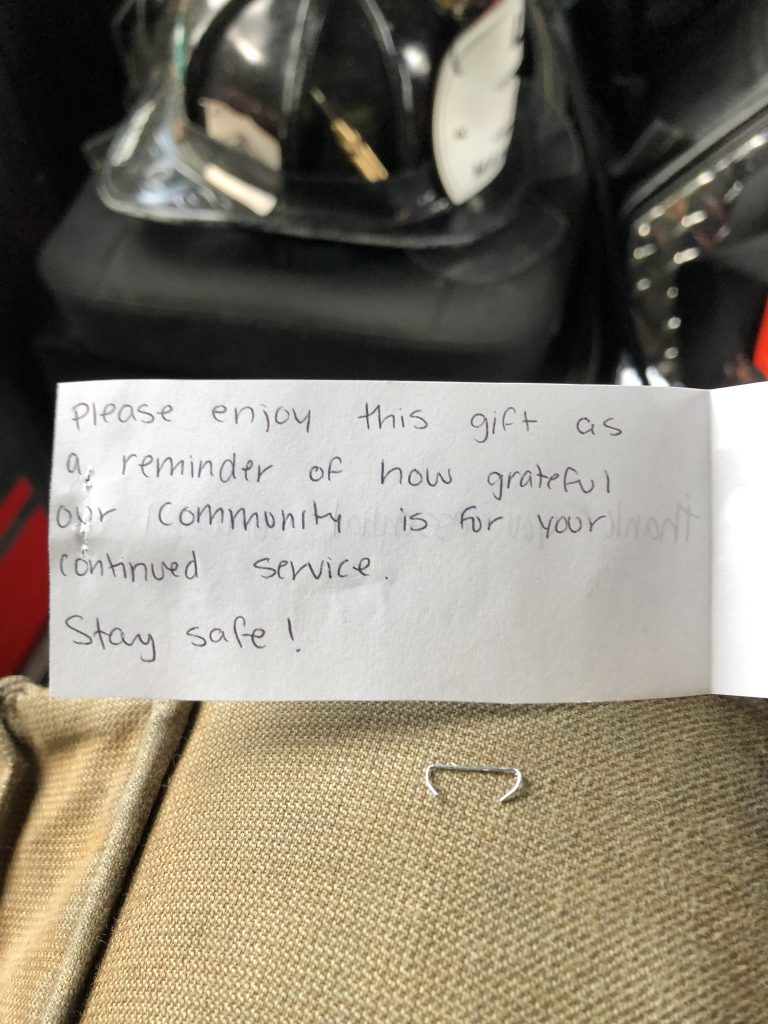 please enjoy this gift as
a reminder of how grateful
our community is for your
continued service.
Stay safe!